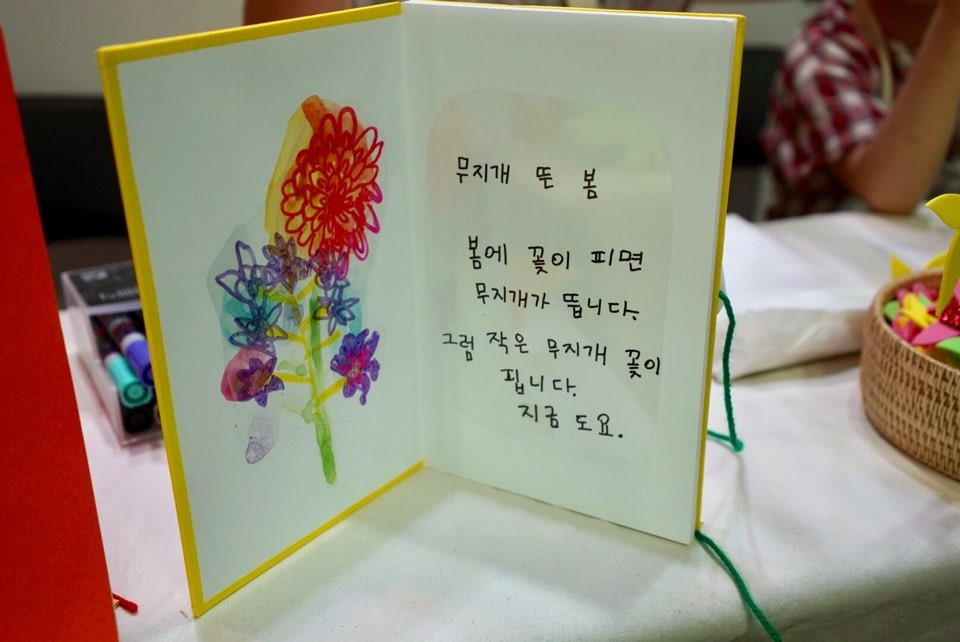 무지개 뜬 봄
봄에 꽃이 피면
무지개가 뜹니다.
그럼 작은 무지개 꽃이
핍니다.
지금 도요.